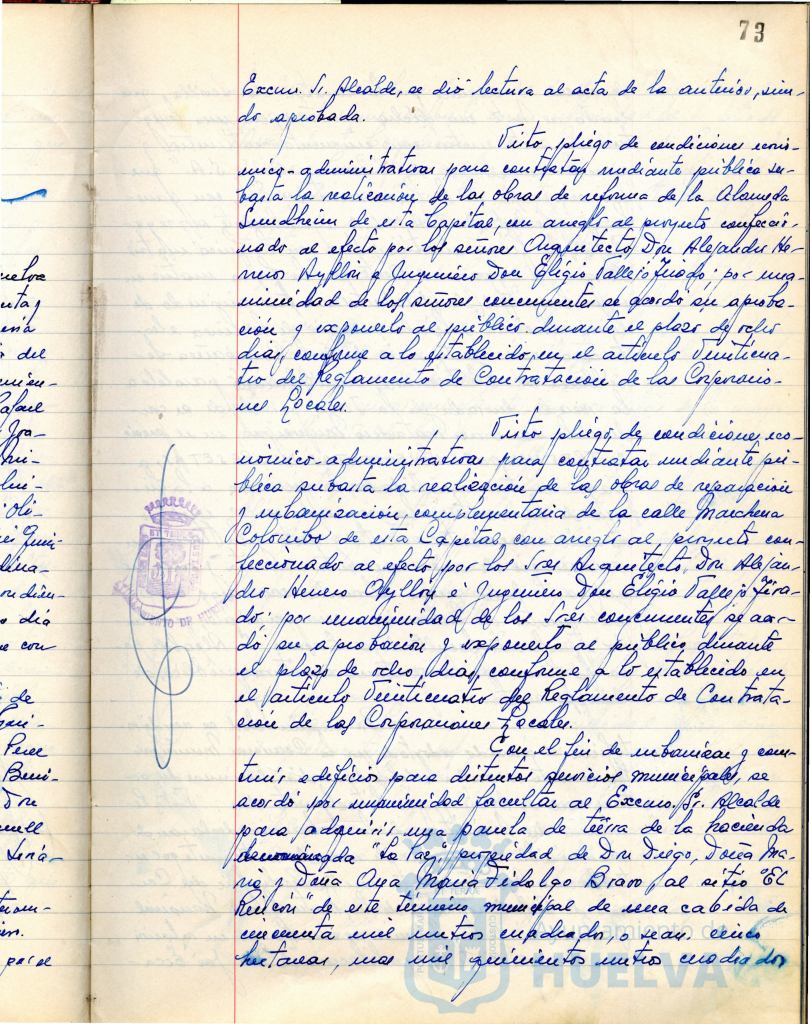 73
Excmo. Sr. Alcalde, se dió lectura al acta de la anterior, sien-
do aprobada.
Visto pliego de condiciones econó-
mico-administrativas para contratar mediante pública su-
basta la realización de las obras de reforma de la Alameda
Sundheim de esta Capital, con arreglo al proyecto confeccio-
nado al efecto por los señores Arquitecto Don Alejandro He-
rrero Ayllón e Ingeniero Don Eligio Vallejo Tirado; por una-
nimidad de los señores concurrentes se acordó su aproba-
ción y exponerlo al público durante el plazo de ocho
días, conforme a lo establecido en el artículo Veinticua-
tro del Reglamento de Contratación de las Corporacio-
nes Locales.
Visto pliego de condiciones eco-
nómico-administrativas para contratar mediante pú-
blica subasta la realización de las obras de reparación
y urbanización complementaria de la calle Marchena
Colombo de esta Capital, con arreglo al proyecto con-
feccionado al efecto por los Sres Arquitecto, Don Alejan-
dro Herrero Ayllón é Ingeniero Don Eligio Vallejo Tira-
do; por unanimidad de los Sres concurrentes se acor-
dó su aprobación y exponerlo al público durante
el plazo de ocho días, conforme a lo establecido en
el artículo Veinticuatro del Reglamento de Contrata-
ción de las Corporaciones Locales.
Con el fin de urbanizar y cons-
truir edificios para distintos servicios municipales, se
acordó por unanimidad facultar al Excmo. Sr. Alcalde
para adquirir una parcela de tierra de la hacienda
denominada "La Paz", propiedad de Don Diego, Doña Ma-
ría y Doña Ana María Fidalgo Bravo, al sitio "El
Rincón" de este término municipal de una cabida de
cincuenta mil metros cuadrados, o sean cinco
hectáreas, mas mil quinientos metros cuadrados
Ayuntamiento de
HUELVA